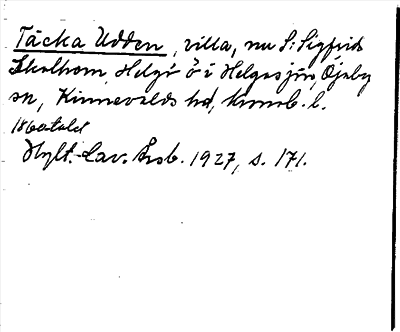 Täcka Udden, villa, nu S:t Sigfrids
Ekolhom, Helgö ö i Helgasjön, Öjaby
sn, Kinnevalds hd, Kronob. l.
1860-talet
Hylt.-Cav. Årsb. 1927, s. 171.